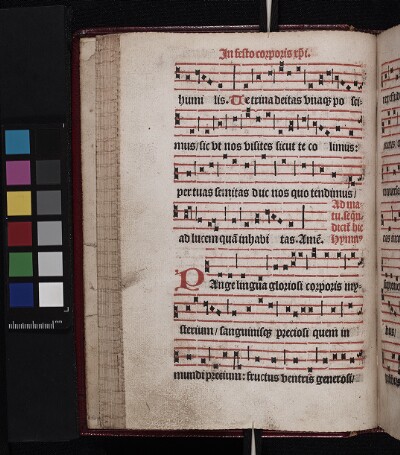 In festo corporis xp̄i.
humi lis. Te trina deitas vnaqȝ po sci-
mus/sic vt nos visites sicut te co limus:
per tuas semitas duc nos quo tendimus/
ad lucem quā inhabi tas. Amē.
Ad ma
tu. seqn̄.
dicit̄ hic
Hymnꝰ
PAnge lingua gloriosi corporis my-
sterium/ sanguinisqȝ preciosi quem in
mundi precium: fructus ventris generosi/